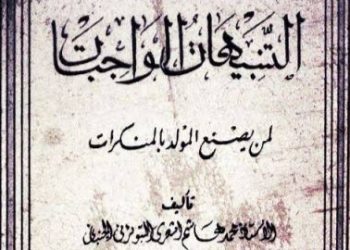 التنبيهات الواجبات
لمن يصنع المولد بالمنكرات
تأليف
الأستاذ محمد هاشم أشعري التبوئرنجي الجنباني